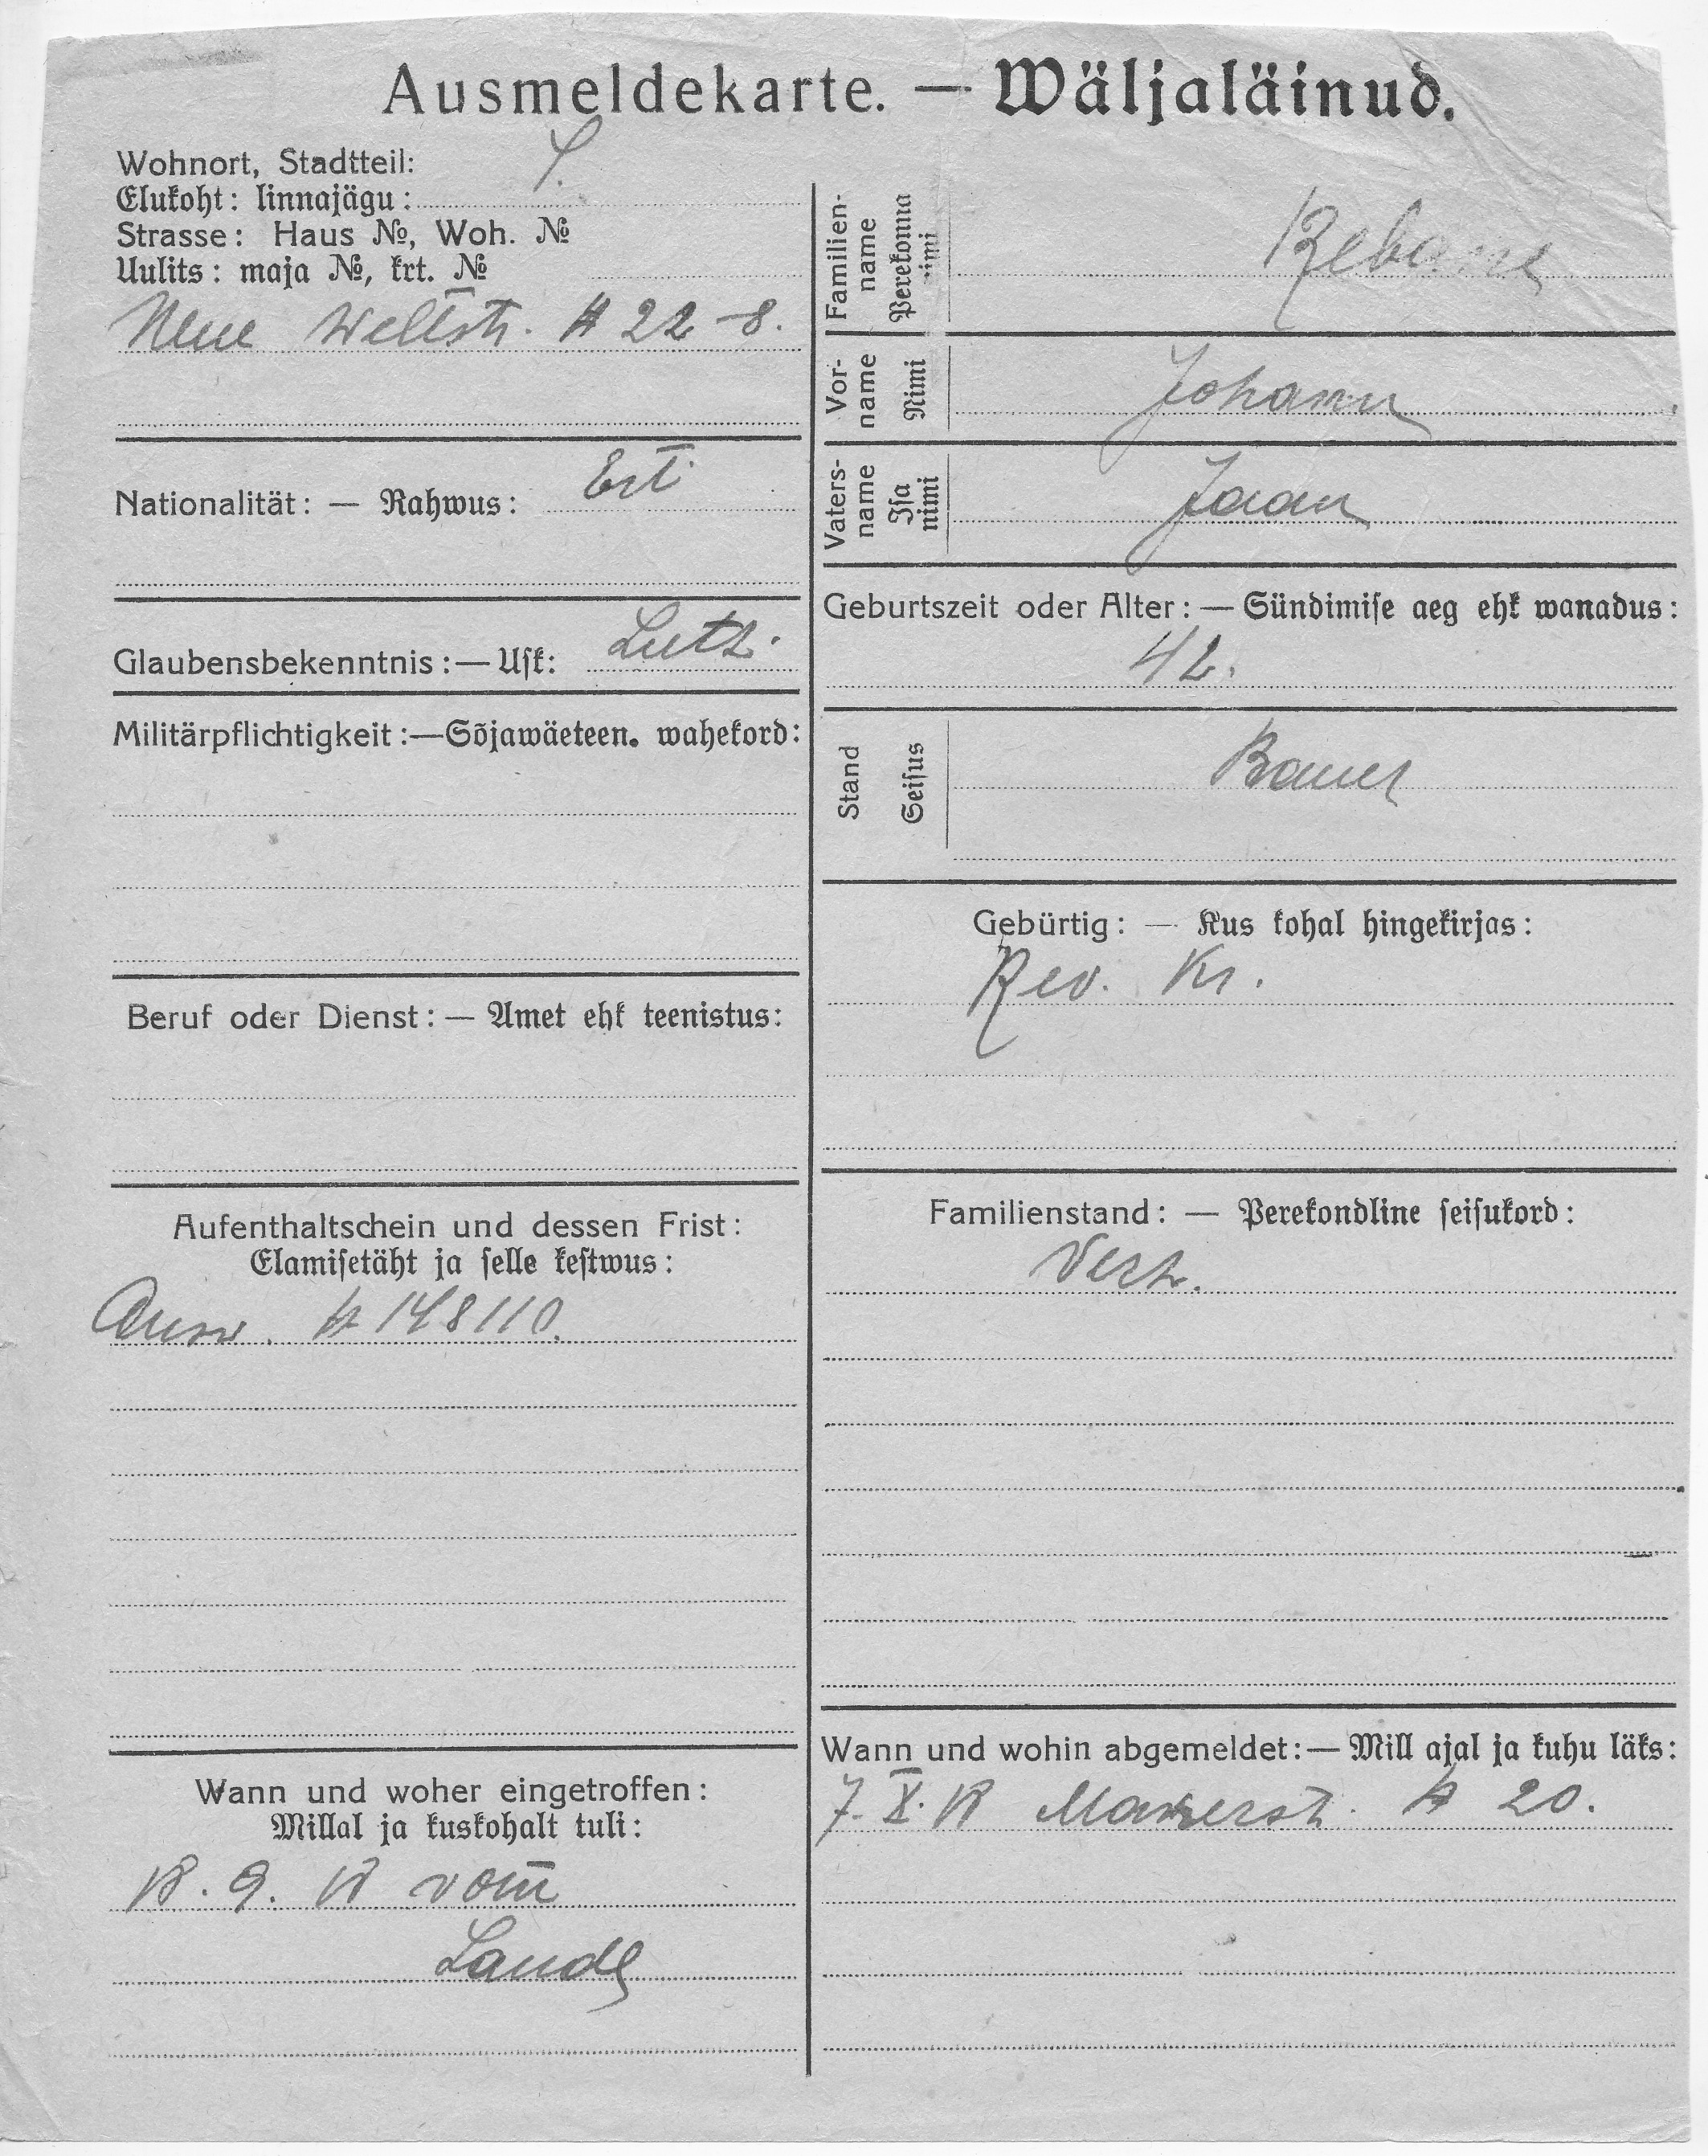 Ausmeldekarte. — Wäljaläinud.
Wohnort, Stadtteil:
Elukoht: linnajägu:
Strasse: Haus №, Woh. №
Uulits: maja №, krt. №
Neue Weltstr. № 22-8.
Nationalität: — Rahwus: Esti
Glaubensbekenntnis:— Usk: Luth.
Militärpflichtigkeit:—Sõjawäeteen. wahekord:
Beruf oder Dienst: — Amet ehk teenistus:
Aufenthaltschein und dessen Frist:
Elamisetäht ja selle kestwus:
Ausw. № 148110.
Wann und woher eingetroffen:
Millal ja kuskohalt tuli:
18. 9. 18 vom
Lande
Familien-
name
Perekonna
nimi
Rebane
Vor-
name
Nimi
Johann
Vaters-
name
Isa
nimi
Jaan
Geburtszeit oder Alter: — Sündimise aeg ehk wanadus:
42.
Stand
Seisus
Bauer
Gebürtig: — Kus kohal hingekirjas:
Rev. Kr.
Familienstand: — Perekondline seisukord:
Verh.
Wann und wohin abgemeldet:— Mill ajal ja kuhu läks:
7. X. 18 Mauerstr. № 20.